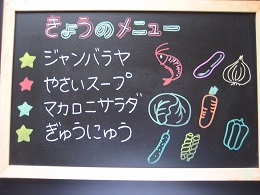 きょうのメニュー
ジャンバラヤ
やさいスープ
マカロニサラダ
ぎゅうにゅう